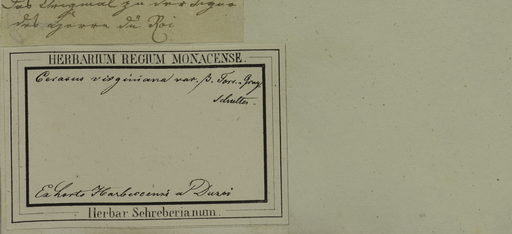 Das Original zu der Figur
des Herrn du Roi
HERBARIUM REGIUM MONACENSE.
Cerasus virginiana var. β. Torr. Gray
Schultes.
Ex horto Harbeccensi a Duroi
Herbar Schreberianum.